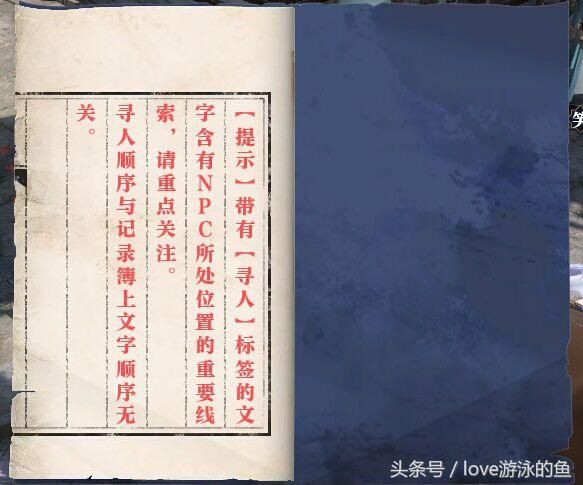 【提示】带有【寻人】标签的文
字含有NPC所处位置的重要线
索，请重点关注。
寻人顺序与记录簿上文字顺序无
关。
笑
头条号 / love游泳的鱼